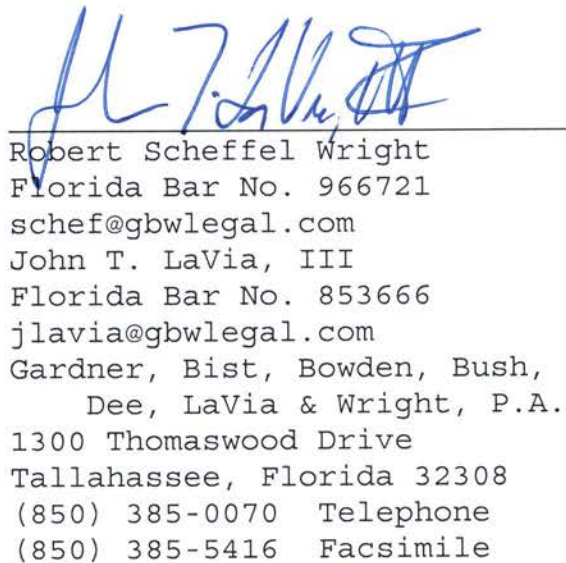 John T. LaVia, III
Robert Scheffel Wright
Florida Bar No. 966721
schef@gbwlegal.com
John T. LaVia, III
Florida Bar No. 853666
jlavia@gbwlegal.com
Gardner, Bist, Bowden, Bush,
Dee, LaVia & Wright, P.A.
1300 Thomaswood Drive
Tallahassee, Florida 32308
(850) 385-0070 Telephone
(850) 385-5416 Facsimile